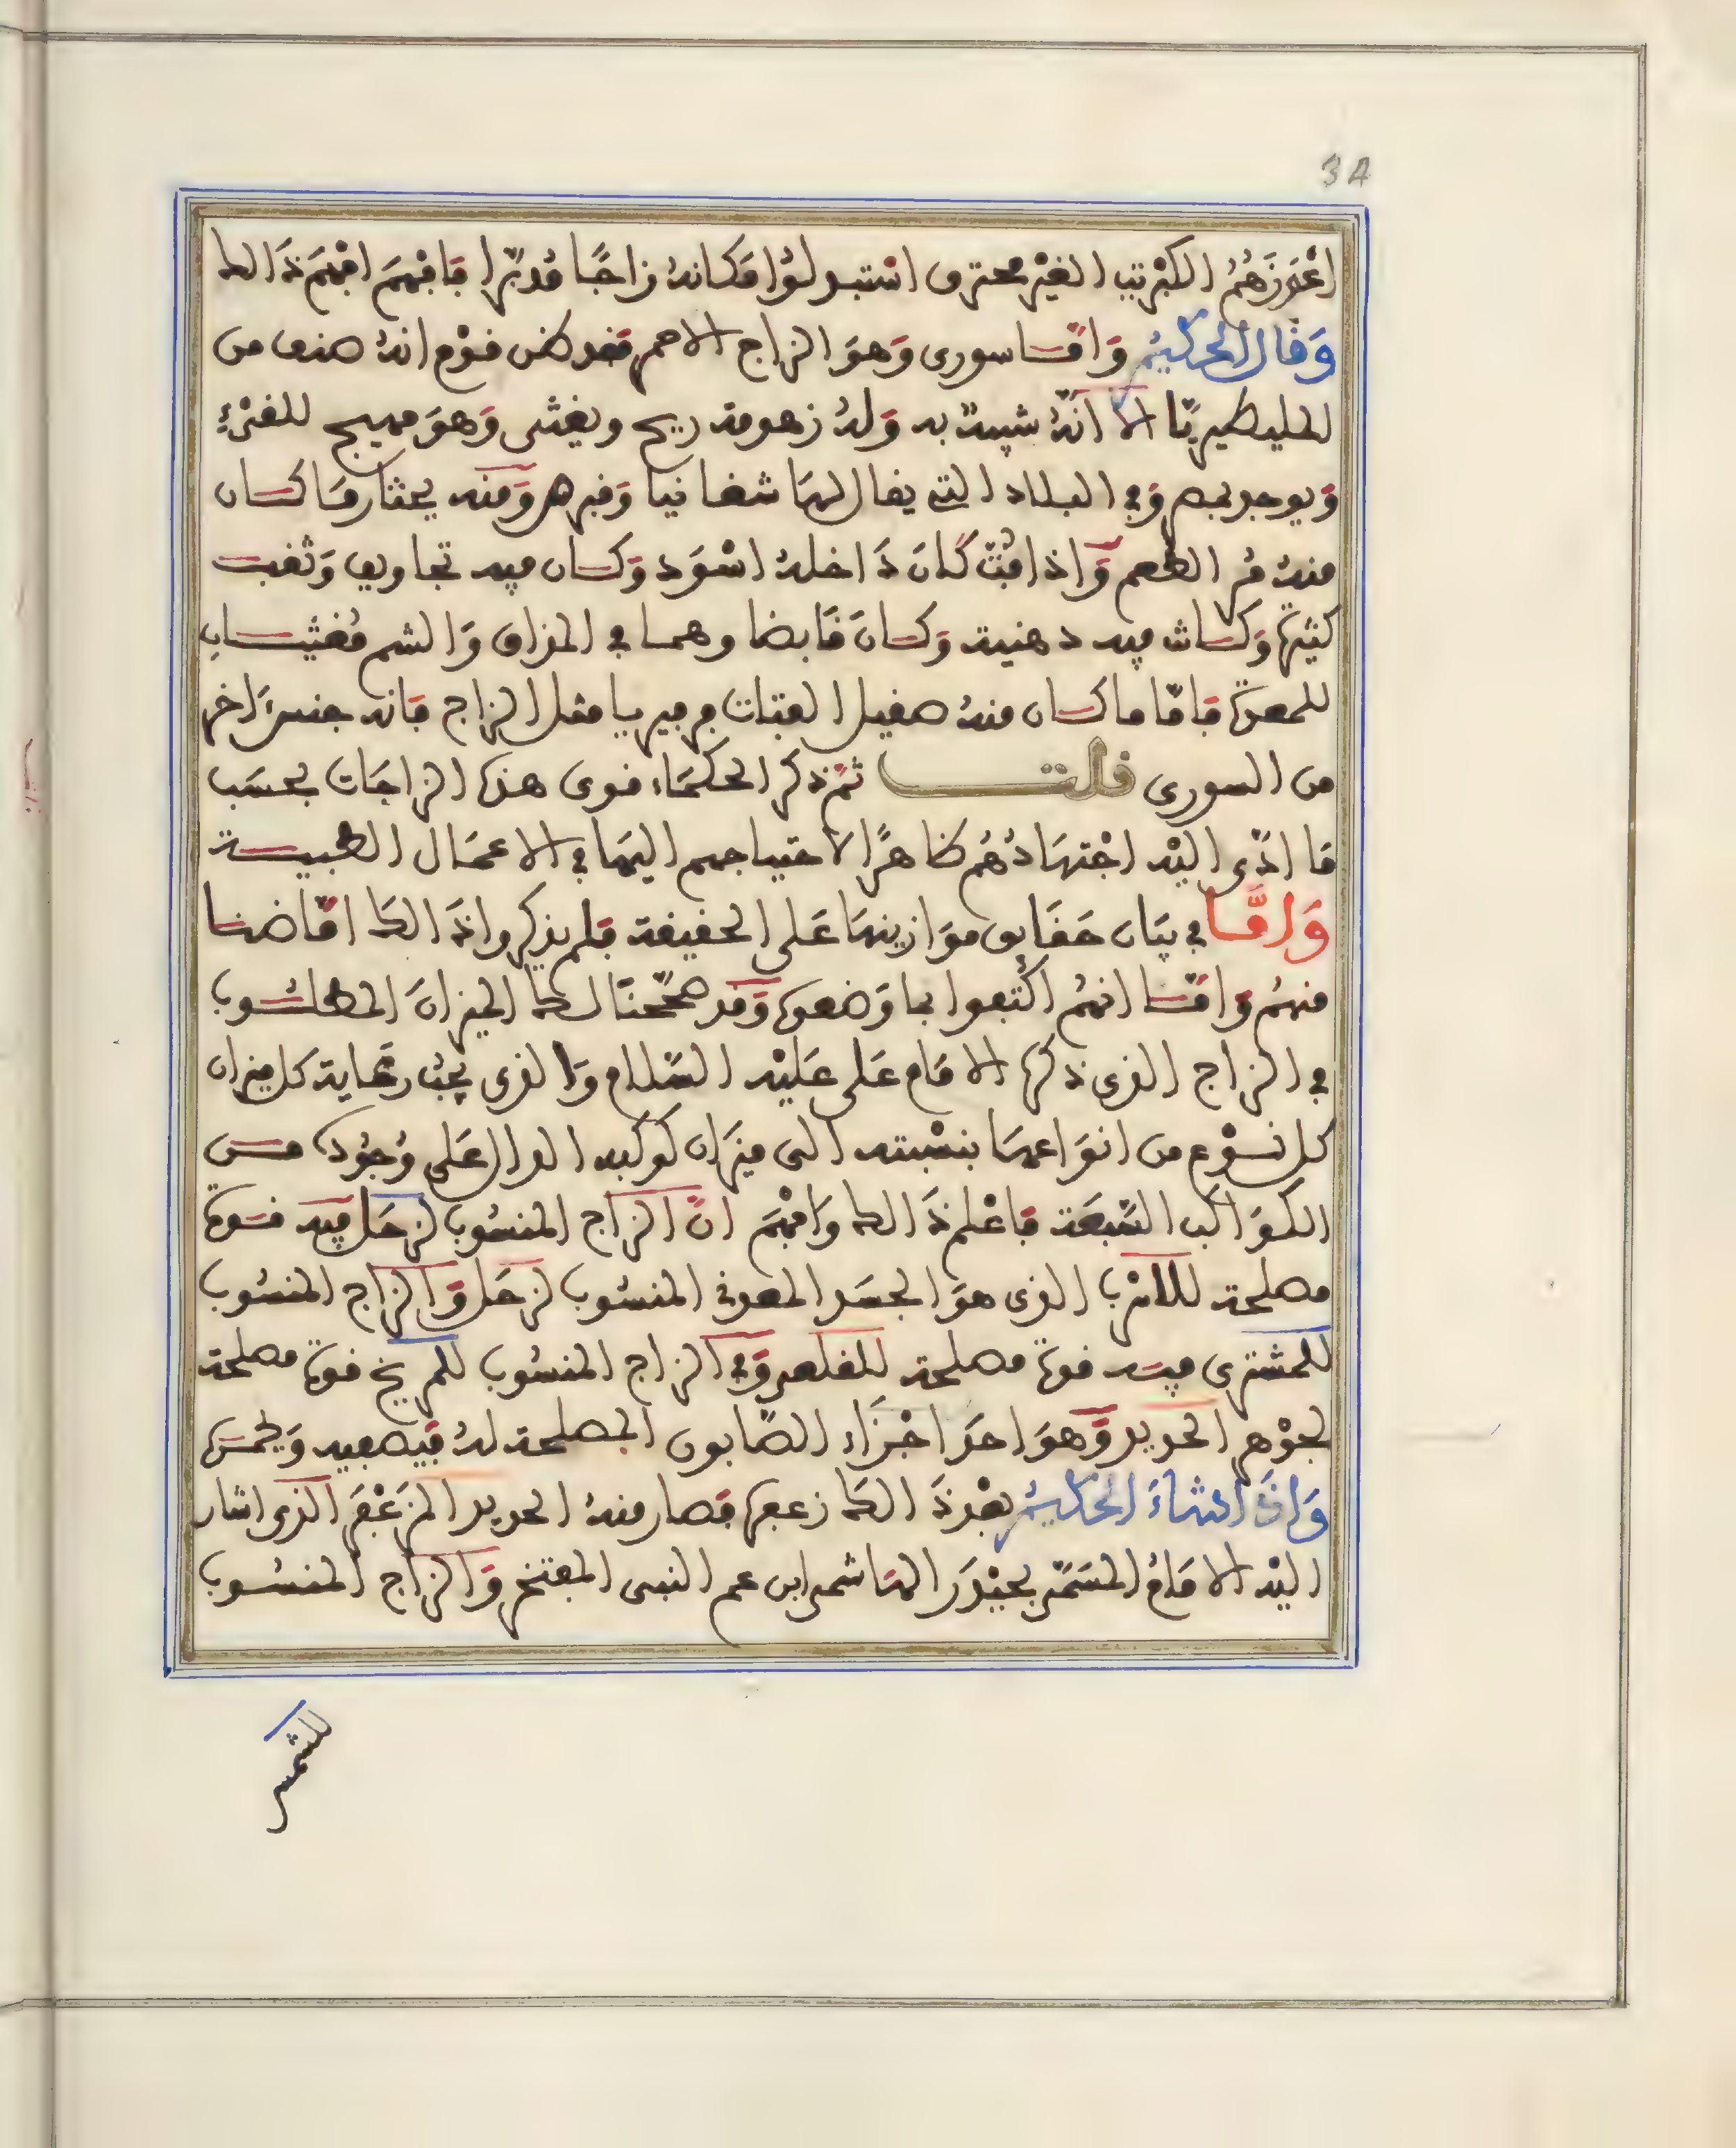 34
اعْوَزَهُمُ الكبْرِيت الغيْر محترق اسْتبدلوُا مَكانهُ زاجًا مُدبّرا فَافْهمَ افْهَمْ ذَالك
وَقَال الحَكيمُ وَامَّا سورى وَهوَ الزاج الاحمر فقد ظن قوْم انهُ صنف من
المليطيريّا الا انّهُ شبيهٌ به وَلهُ زهومة ريح ويغثى وَهوَ مهيج للقىْءِ
وَيوجد بمصر وَفي البلاد التي يقال لهَا شقانيا وَقبرهر وَمنه يمثار وَمَا كان
منهُ مُر الطعم وَاذا فُتّ كَانَ دَاخلهُ اسْوَد وَكان فيه تجاويف وَثقب
كثيرة وَكانت فيه دهنية وَكانَ قَابضا وهما في المذاق وَالشم مُغثيان
للمعدة فَامّا ما كان منهُ صقيل الفتات فرفيريا مثل الزاج فَانه جنسٌ اخر
من السورى قلت ثمّ ذكَر الحكمَاء قوى هذه الزاجَات بحسَب
مَا ادّى اليْه اجْتهَادُهُم ظاهرًا لاحتياجهم اليهَا في الاعمَال الطبية
وَامَّا في بيَان حقَايق موَازينهَا عَلى الحقيقة فلم يذكروا ذَالك امّا ضنا
منهُم وَامّا انهمُ اكْتفوا بما وَضعوه وَقد صحّحنَا لك الميزانَ المطلُوب
في الزاج الذى ذكره الامَام عَلى عَليْه السّلام وَالذى يجبُ رعَاية كل ميزان
كل نوْع من انوَاعهَا بنسْبته الى ميزَان كوكبه الدال عَلى وُجُوده من
الكوَاكب السّبعَة فَاعْلم ذَالك وَافهْم انّ الزاج المنسُوب لزحَل فيه قوَّة
مصلحة للاسْرب الذى هوَ الجسَد المعروف المنسُوب لزحَل وَالزاج المنسُوب
للمشترى فيه قوة مصلحة للقلعى وَفي الزاج المنسُوب للمريخ قوة مصلحة
لجوْهر الحديد وَهوَ احد اجْزَاء الصّابون المصلحة لهُ فيصفيه وَيحمّره
وَاذَا شَاءَ الحَكيمُ بعْد ذَالك زعفره فصار منهُ الحديد المزعْفَر الذى اشار
اليْه الامَامُ المسَمّى بحيْدَر الهاشمى ابن عم النبى المفتخر وَالزاج المنسُوب
للشمس